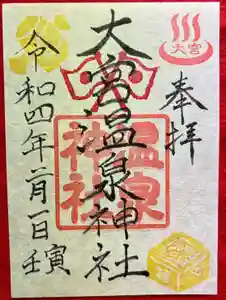 奉拝
大宮
大宮温泉神社
温泉
神社
令和四年二月一日
壬寅